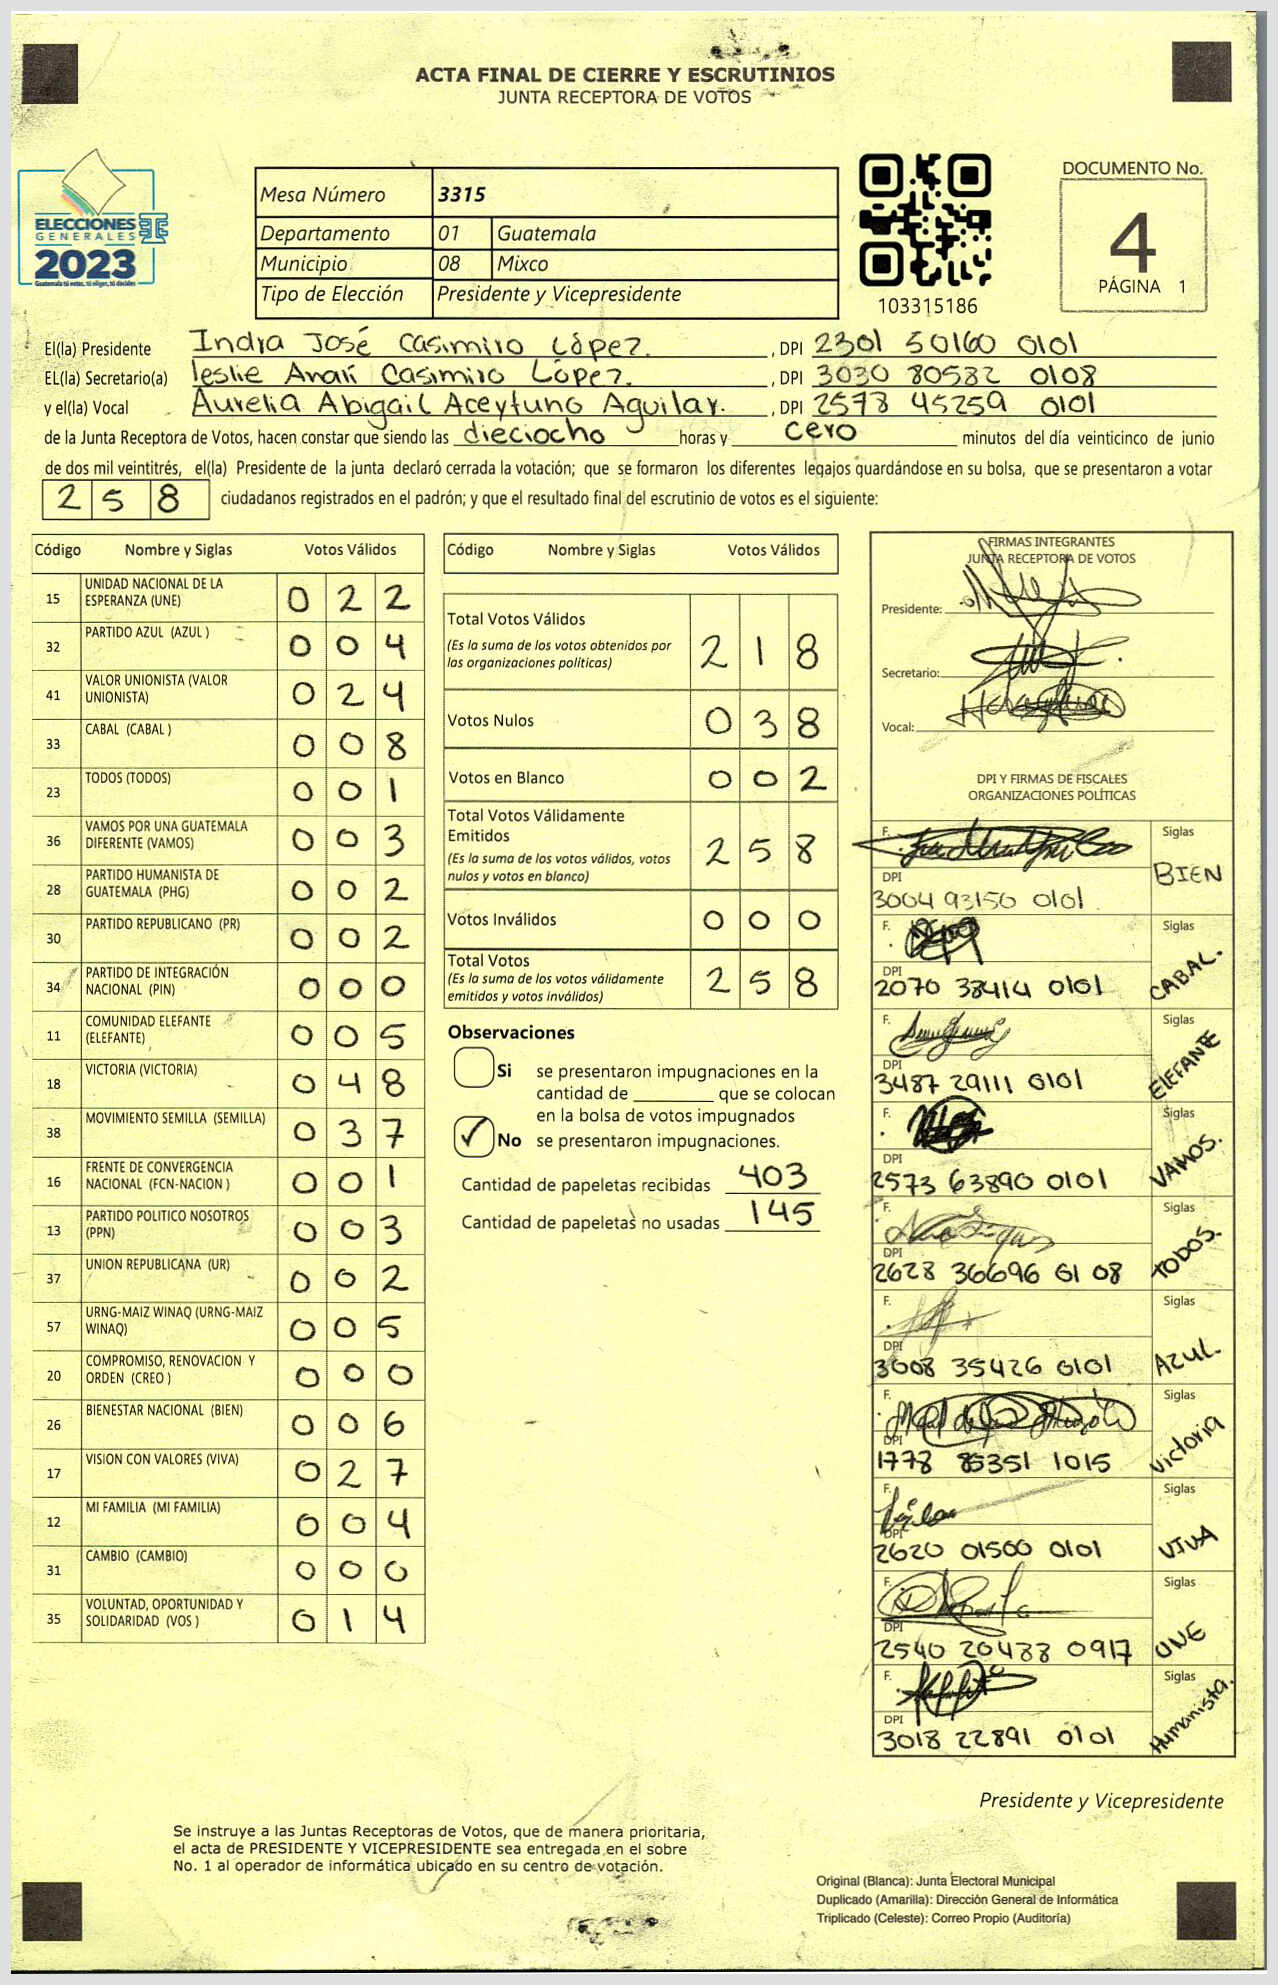 ACTA FINAL DE CIERRE Y ESCRUTINIOS
JUNTA RECEPTORA DE VOTOS
ELECCIONES
GENERALES
2023
Guatemala tú votas, tú eliges, tú decides
Mesa Número 3315
Departamento 01 Guatemala
Municipio 08 Mixco
Tipo de Elección Presidente y Vicepresidente
103315186
DOCUMENTO No.
4
PÁGINA 1
El(la) Presidente Indra José Casimiro López. , DPI 2301 50160 0101
EL(la) Secretario(a) leslie Anali Casimiro López. , DPI 3030 80582 0108
y el(la) Vocal Aurelia Abigail Aceytuno Aguilar. , DPI 2578 45259 0101
de la Junta Receptora de Votos, hacen constar que siendo las dieciocho horas y cero minutos del día veinticinco de junio
de dos mil veintitrés, el(la) Presidente de la junta declaró cerrada la votación; que se formaron los diferentes legajos guardándose en su bolsa, que se presentaron a votar
2 5 8 ciudadanos registrados en el padrón; y que el resultado final del escrutinio de votos es el siguiente:
Código Nombre y Siglas Votos Válidos
15 UNIDAD NACIONAL DE LA ESPERANZA (UNE) 0 2 2
32 PARTIDO AZUL (AZUL ) 0 0 4
41 VALOR UNIONISTA (VALOR UNIONISTA) 0 2 4
33 CABAL (CABAL ) 0 0 8
23 TODOS (TODOS) 0 0 1
36 VAMOS POR UNA GUATEMALA DIFERENTE (VAMOS) 0 0 3
28 PARTIDO HUMANISTA DE GUATEMALA (PHG) 0 0 2
30 PARTIDO REPUBLICANO (PR) 0 0 2
34 PARTIDO DE INTEGRACIÓN NACIONAL (PIN) 0 0 0
11 COMUNIDAD ELEFANTE (ELEFANTE) 0 0 5
18 VICTORIA (VICTORIA) 0 4 8
38 MOVIMIENTO SEMILLA (SEMILLA) 0 3 7
16 FRENTE DE CONVERGENCIA NACIONAL (FCN-NACION ) 0 0 1
13 PARTIDO POLITICO NOSOTROS (PPN) 0 0 3
37 UNION REPUBLICANA (UR) 0 0 2
57 URNG-MAIZ WINAQ (URNG-MAIZ WINAQ) 0 0 5
20 COMPROMISO, RENOVACION Y ORDEN (CREO ) 0 0 0
26 BIENESTAR NACIONAL (BIEN) 0 0 6
17 VISION CON VALORES (VIVA) 0 2 7
12 MI FAMILIA (MI FAMILIA) 0 0 4
31 CAMBIO (CAMBIO) 0 0 0
35 VOLUNTAD, OPORTUNIDAD Y SOLIDARIDAD (VOS ) 0 1 4
Código Nombre y Siglas Votos Válidos
Total Votos Válidos
(Es la suma de los votos obtenidos por
las organizaciones políticas) 2 1 8
Votos Nulos 0 3 8
Votos en Blanco 0 0 2
Total Votos Válidamente
Emitidos
(Es la suma de los votos válidos, votos
nulos y votos en blanco) 2 5 8
Votos Inválidos 0 0 0
Total Votos
(Es la suma de los votos válidamente
emitidos y votos inválidos) 2 5 8
Observaciones
Si se presentaron impugnaciones en la
cantidad de ________ que se colocan
en la bolsa de votos impugnados
No se presentaron impugnaciones.
Cantidad de papeletas recibidas 403
Cantidad de papeletas no usadas 145
FIRMAS INTEGRANTES
JUNTA RECEPTORA DE VOTOS
Presidente:
Secretario:
Vocal:
DPI Y FIRMAS DE FISCALES
ORGANIZACIONES POLÍTICAS
F. Siglas
DPI BIEN
3004 93150 0101
F. Siglas
DPI CABAL.
2070 38414 0101
F. Siglas
DPI ELEFANTE
3487 29111 0101
F. Siglas
DPI VAMOS.
2573 63890 0101
F. Siglas
DPI TODOS.
2628 36696 01 08
F. Siglas
DPI AZUL.
3008 35426 0101
F. Siglas
DPI Victoria
1778 85351 1015
F. Siglas
DPI VIVA
2620 01500 0101
F. Siglas
DPI UNE
2540 20488 0917
F. Siglas
DPI Humanista.
3018 22891 0101
Presidente y Vicepresidente
Se instruye a las Juntas Receptoras de Votos, que de manera prioritaria,
el acta de PRESIDENTE Y VICEPRESIDENTE sea entregada en el sobre
No. 1 al operador de informática ubicado en su centro de votación.
Original (Blanca): Junta Electoral Municipal
Duplicado (Amarilla): Dirección General de Informática
Triplicado (Celeste): Correo Propio (Auditoría)